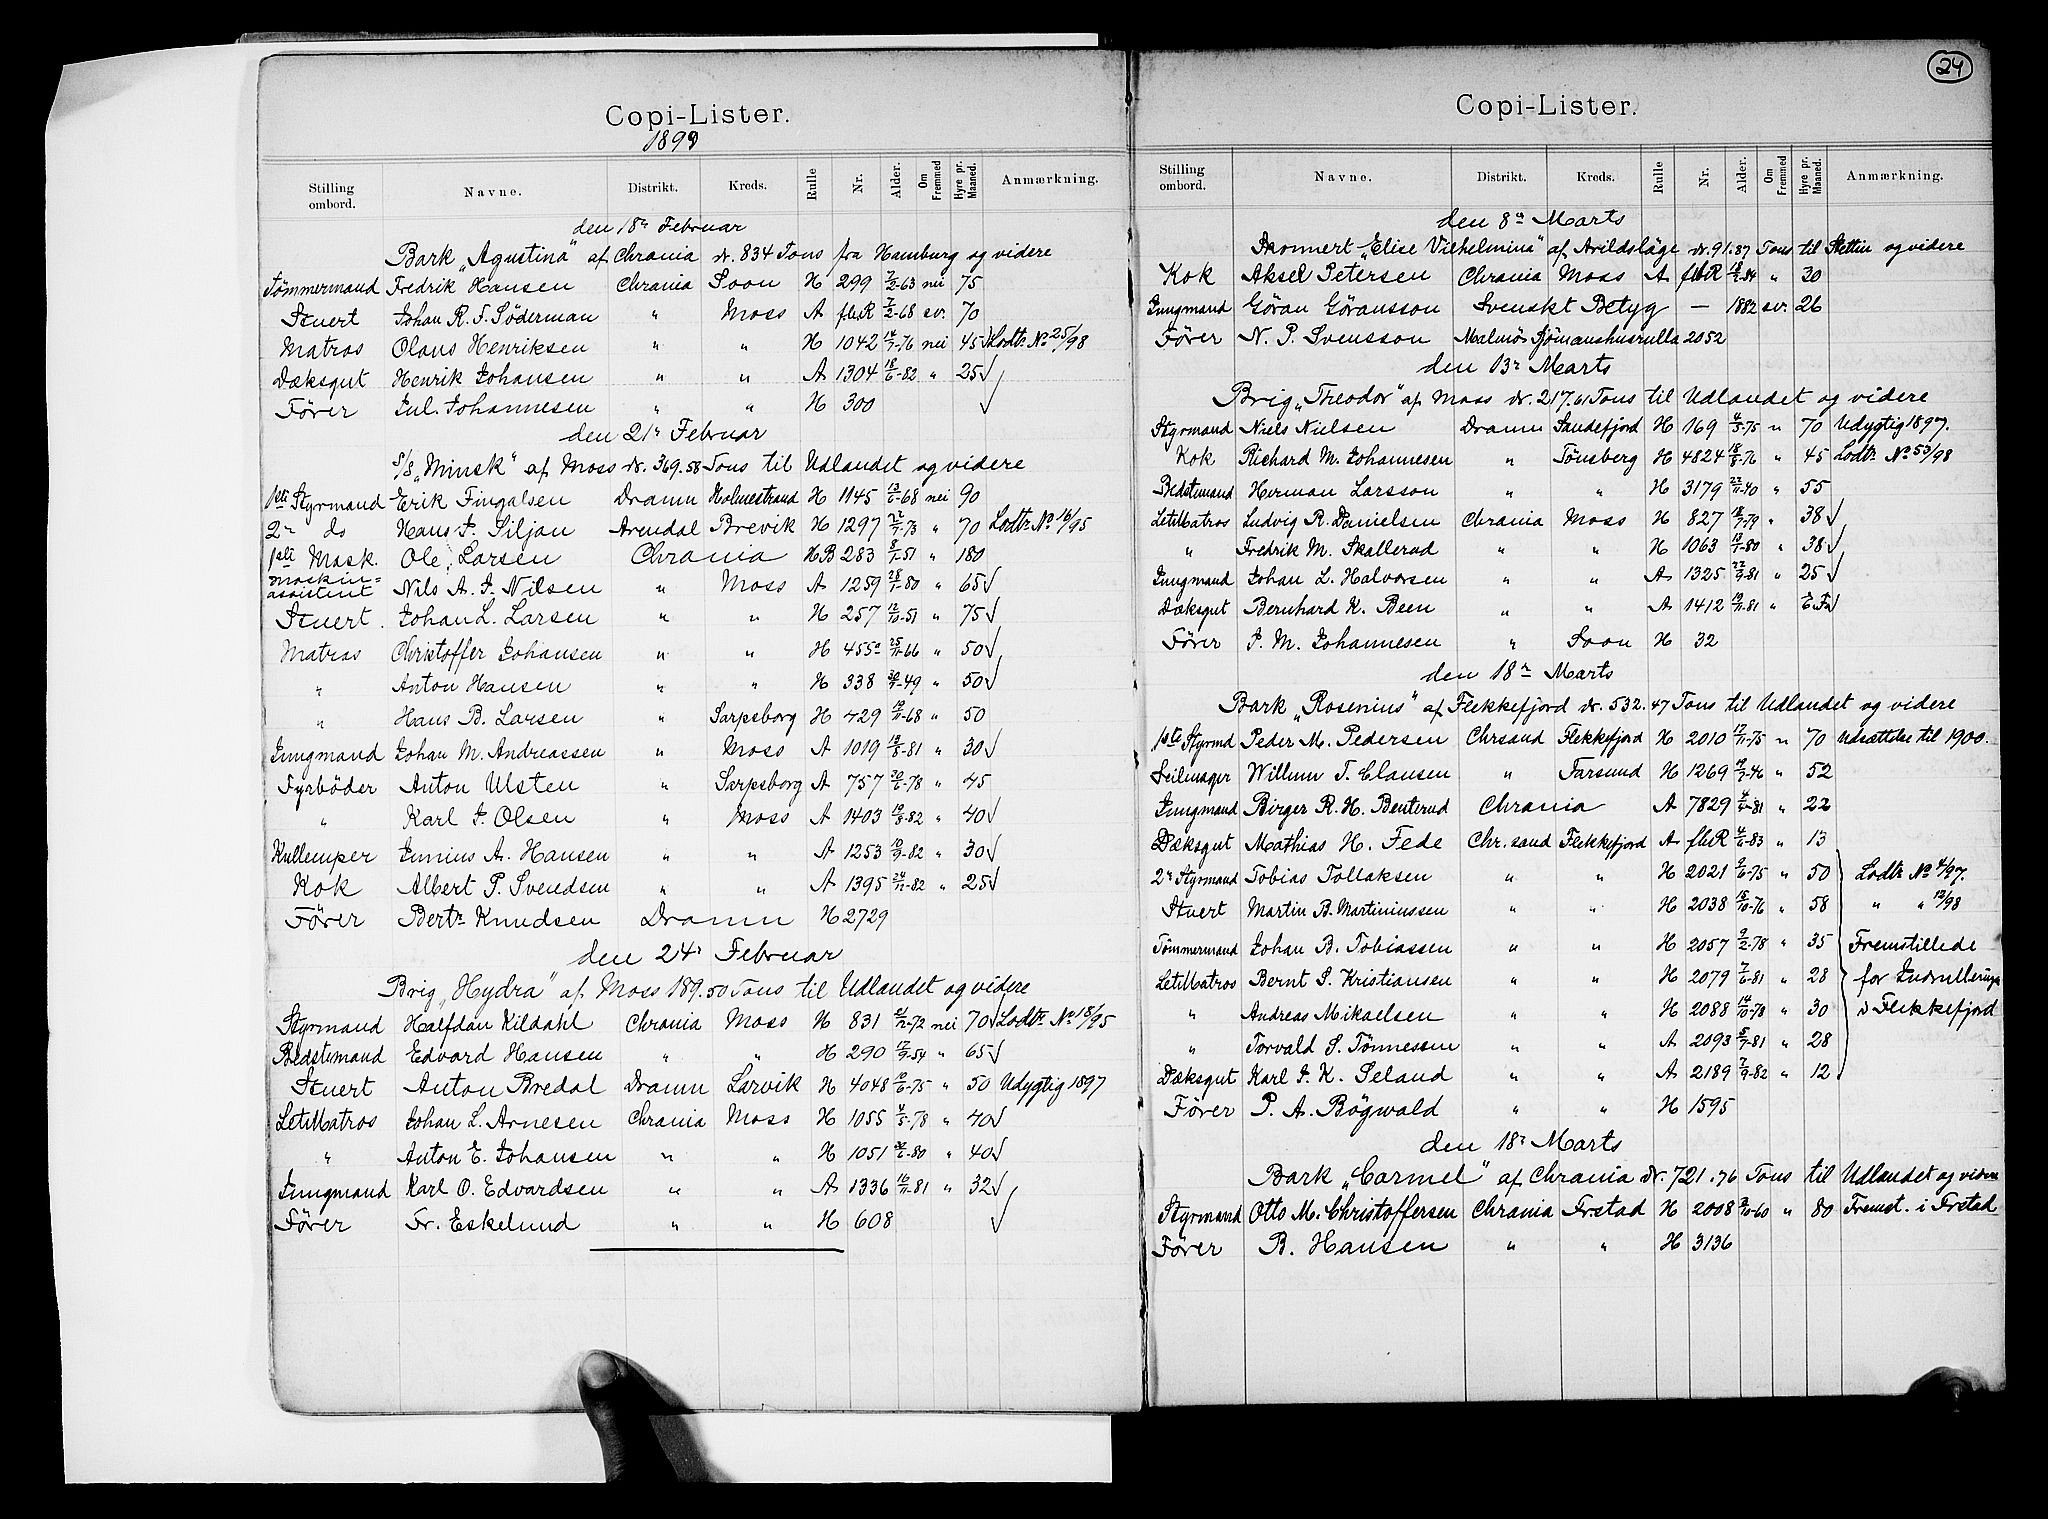 Copi-Lister.
1899
Stilling ombord. Navne. Distrikt. Kreds. Rulle Nr. Alder. Om Fremmed Hyre pr. Maaned. Anmærkning.
den 18r Februar
Bark „Agustina" af Chrania dr. 834 Tons fra Hamburg og videre
Tömmermand Fredrik Hansen Chrania Soon H 299 7/2-63 nei 75
Stuert Johan R. F. Söderman " Moss A fl.R 7/2-68 sv. 70
Matros Olaus Henriksen " " H 1042 14/7-76 nei 45 √ Lodtr. No 25/98
Dæksgut Henrik Johansen " " A 1304 18/6-82 " 25 √
Förer Jul. Johannesen " " H 300 √
den 21r Februar
S/S „Minsk" af Moss dr. 369.58 Tons til Udlandet og videre
1ste Styrmand Erik Fingalsen Dramn Holmestrand H 1145 13/6-68 nei 90
2n do Hans J. Siljan Arendal Brevik H 1297 22/7-73 " 70 Lodtr. No 16/95
1ste Mask. Ole Larsen Chrania HB 283 8/1-51 " 180
maskin=
assistent Nils A. J. Nilsen " Moss A 1259 28/1-80 " 65 √
Stuert Johan L. Larsen " " H 257 12/10-51 " 75 √
Matros Christoffer Johansen " " H 455a 25/11-66 " 50 √
" Anton Hansen " " H 338 -49 " 50 √
" Hans B. Larsen " Sarpsborg H 429 19/11-68 " 50
Jungmand Johan M. Andreassen " Moss A 1019 19/8-81 " 30 √
Fyrböder Anton Ulsten " Sarpsborg A 757 30/6-78 " 45
" Karl J. Olsen " Moss A 1403 19/3-82 " 40 √
Kullemper Junius A. Hansen " " A 1253 10/9-82 " 30 √
Kok Albert P. Svendsen " " A 1395 24/11-82 " 25 √
Förer Bertr. Knudsen Dramn H 2729
den 24r Februar
Brig „Hydra" af Moss 189.50 Tons til Udlandet og videre
Styrmand Halfdan Kildahl Chrania Moss H 831 21/12-72 nei 70 √ Lodtr. No 18/95
Bedstemand Edvard Hansen " " H 290 17/9-54 " 65 √
Stuert Anton Bredal Dramn Larvik H 4048 19/6-75 " 50 Udygtig 1897
LetMatros Johan L. Arnesen Chrania Moss H 1055 4/5-78 " 40 √
" Anton E. Johansen " " H 1051 -80 " 40 √
Jungmand Karl O. Edvardsen " " A 1336 16/11-81 " 32 √
Förer Fr. Eskelund " " H 608 √
24
Copi-Lister.
Stilling ombord. Navne. Distrikt. Kreds. Rulle Nr. Alder. Om Fremmed Hyre pr. Maaned. Anmærkning.
den 8de Marts
Skonnert „Elise Vilhelmina" af Arildsläge dr. 91.87 Tons til Stettin og videre
Kok Aksel Petersen Chrania Moss A fl.R -84 " 30
Jungmand Göran Göransson Svenskt Betyg — 1882 sv. 26
Förer N. P. Svensson Malmös Sjömanshusrulla 2052
den 13r Marts
Brig „Theodor" af Moss dr. 217.61 Tons til Udlandet og videre
Styrmand Niels Nielsen Dramn Sandefjord H 169 4/3-75 " 70 Udygtig 1897.
Kok Richard M. Johannesen " Tönsberg H 4824 18/8-76 " 45 Lodtr. No 53/98
Bedstemand Herman Larsson " " H 3179 22/11-40 " 55
LetMatros Ludvig R. Danielsen Chrania Moss H 827 18/7-79 " 38 √
" Fredrik M. Skallerud " " H 1063 13/1-80 " 38 √
Jungmand Johan L. Halvorsen " " A 1325 22/9-81 " 25 √
Dæksgut Bernhard K. Been " " A 1412 19/11-81 " √
Förer J. M. Johannesen " Soon H 32
den 18r Marts
Bark „Rosenius" af Flekkefjord dr. 532.47 Tons til Udlandet og videre
1ste Styrmd Peder M. Pedersen Chrsand Flekkefjord H 2010 17/11-75 " 70 Udsættelse til 1900.
Seilmager Willum T. Clausen " Farsund H 1269 19/7-46 " 52
Jungmand Birger R. H. Benterud Chrania A 7829 4/6-81 " 22
Dæksgut Mathias H. Fede Chr.sand Flekkefjord A fl.R 4/6-83 " 13
2n Styrmand Tobias Tollaksen " " H 2021 9/6-75 " 50 Lodtr. No 4/97.
Stuert Martin B. Martiniussen " " H 2038 15/10-76 " 58 " " 12/98
Tömmermand Johan B. Tobiassen " " H 2057 9/2-78 " 35 Fremstillede
LetMatros Bernt S. Kristiansen " " H 2079 7/6-81 " 28 for Indrullering
" Andreas Mikaelsen " " H 2088 14/10-78 " 30 i Flekkefjord
" Torvald S. Tönnessen " " A 2093 5/7-81 " 28
Dæksgut Karl J. K. Seland " " A 2189 7/9-82 " 12
Förer P. A. Bögwald " " H 1595
den 18r Marts
Bark „Carmel" af Chrania dr. 721.76 Tons til Udlandet og videre
Styrmand Otto M. Christoffersen Chrania Frstad H 2008 -60 " 80 Fremst. i Frstad
Förer B. Hansen " " H 3136